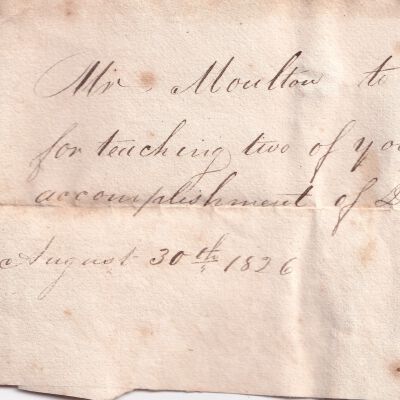 Mr Moulton to
for teaching two of you
accomplishment of D
August 30th 1826